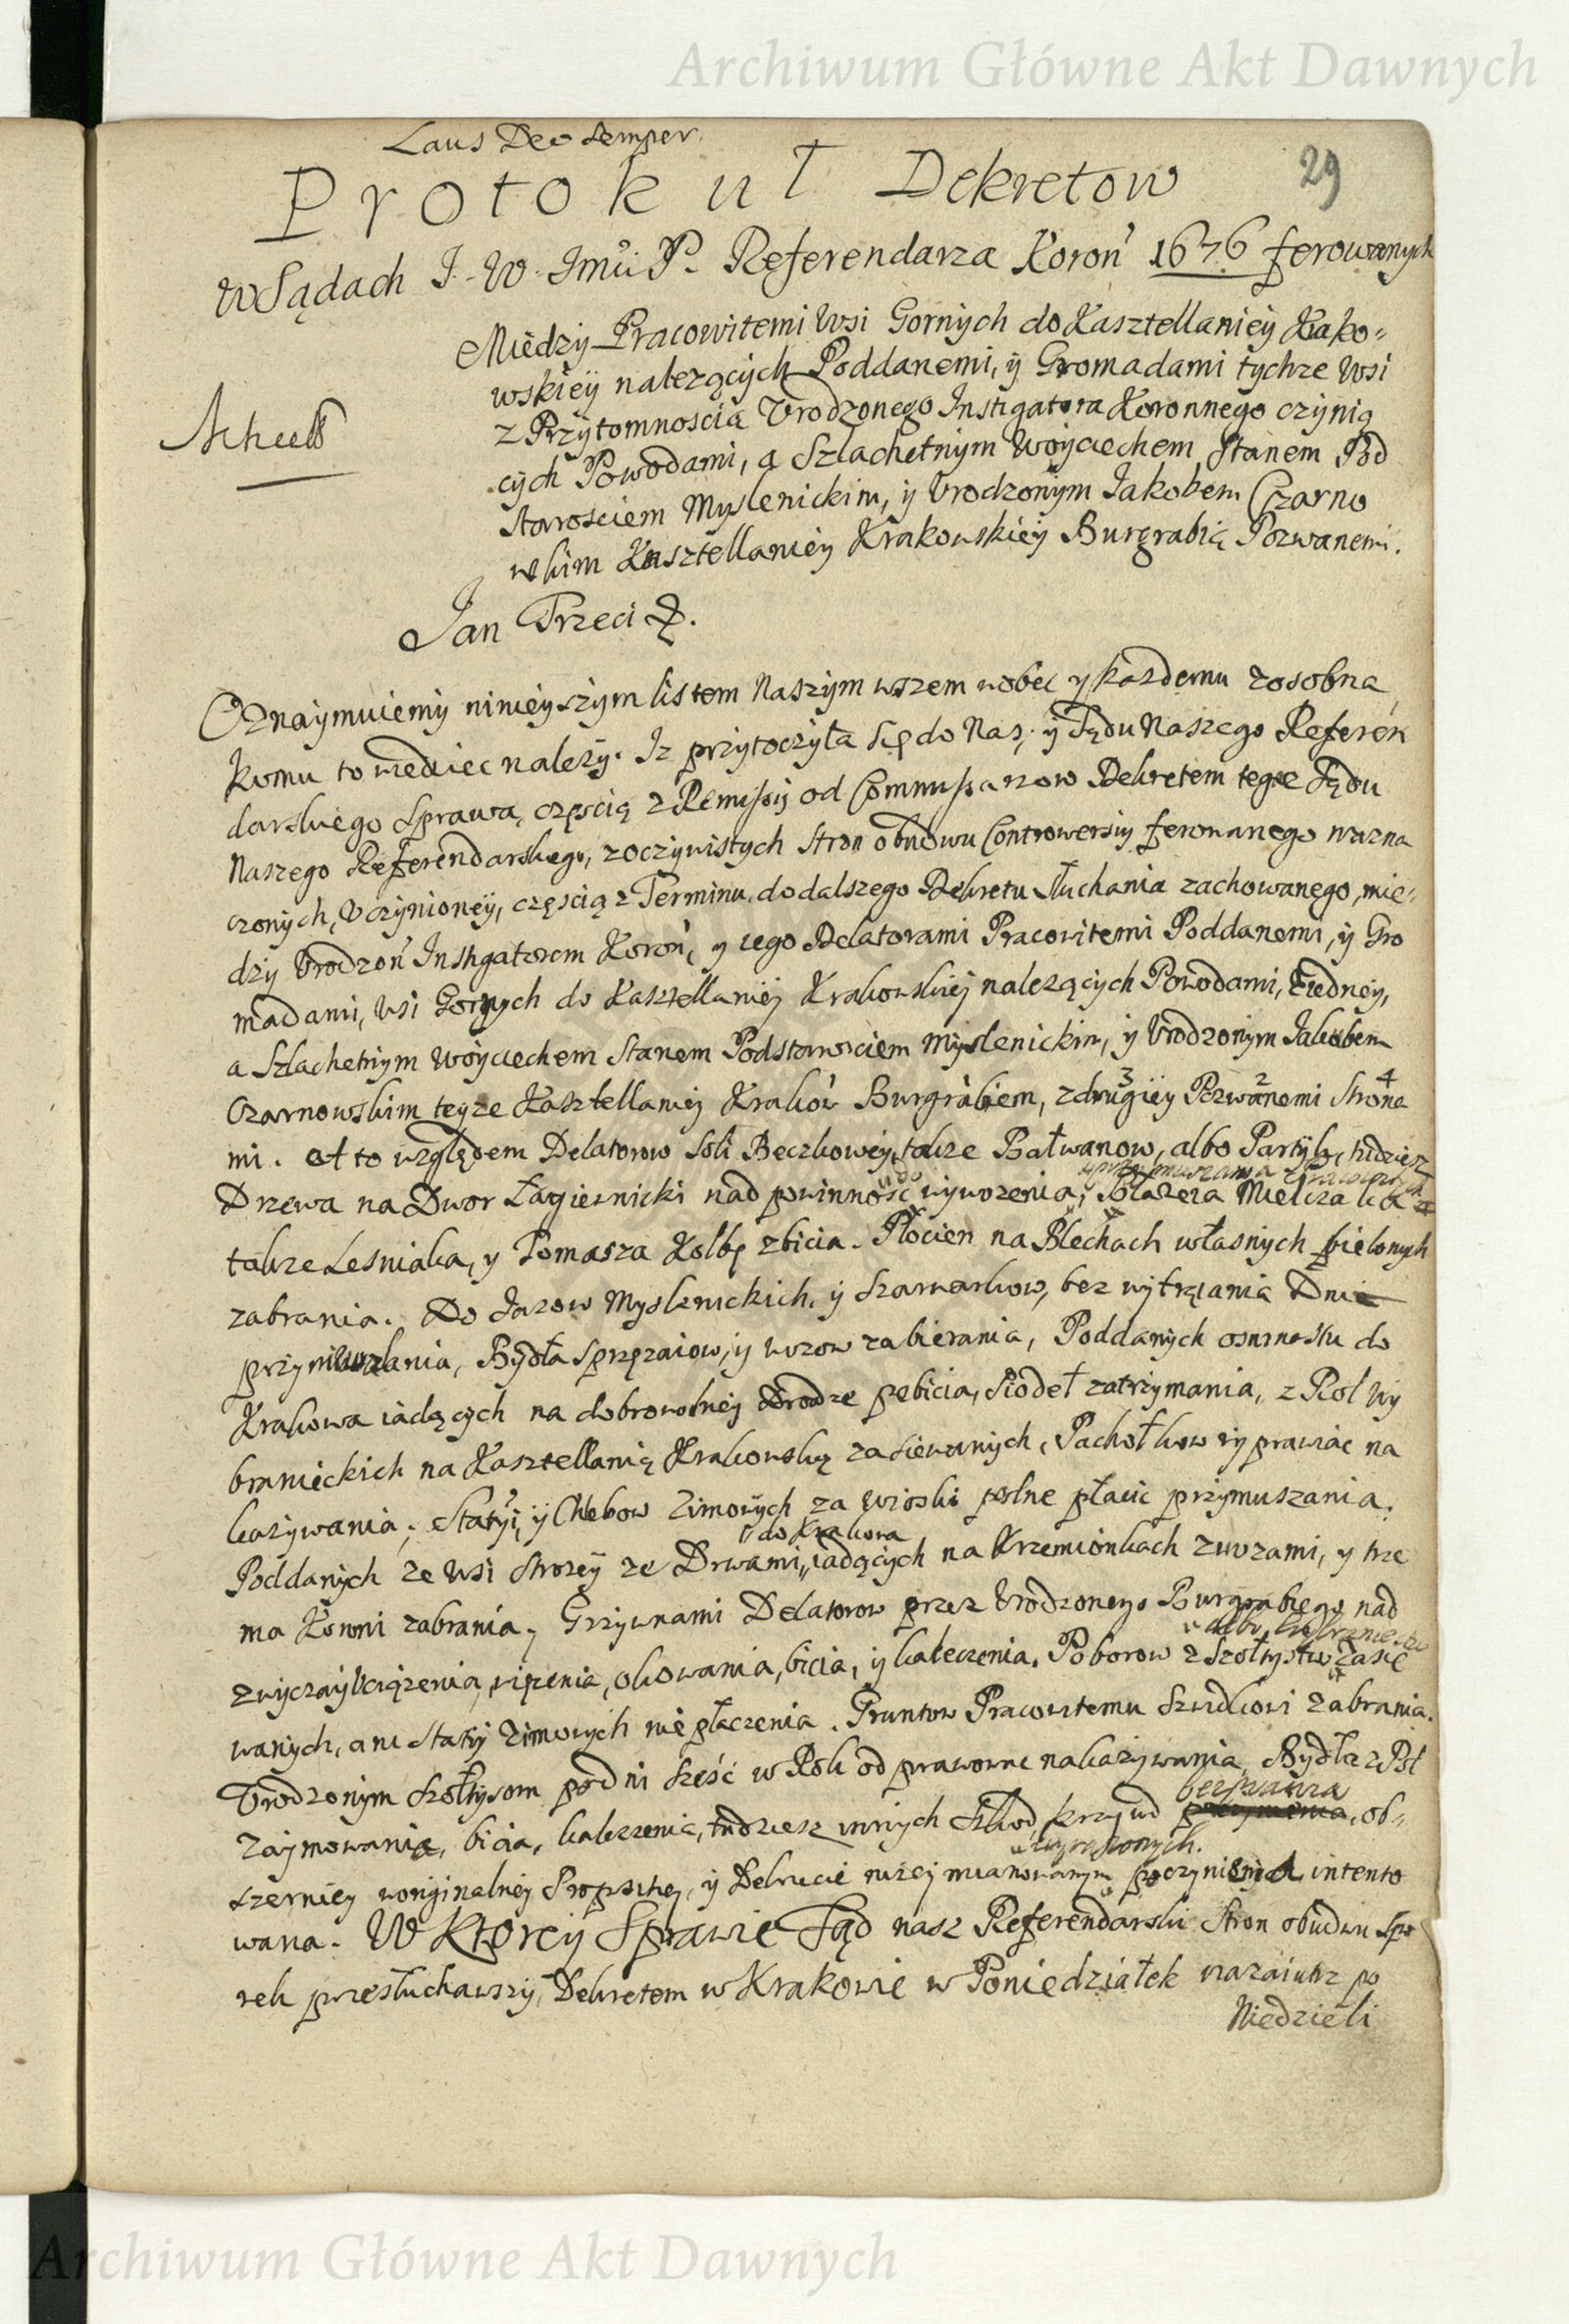 Archiwum Główne Akt Dawnych
Laus Deo Semper.
Protokuł Dekretow
29
w Sądach J. W. Jmći P. Referendarza Koroń 1676 ferowanych
Między Pracowitemi Wsi Gornych do Kasztellaniey Krako=
wskiey należących Poddanemi, y Gromadami tychże Wsi
z Przytomnoscią Vrodzonego Instigatora Koronnego czynią
cych Powodami, a Szlachetnym Woyciechem Stanem Pod
Starosciem Myslenickim, y Vrodzonym Jakobem Czarno
wskim Kasztellaniey Krakowskiey Burgrabią Pozwanemi.
Jan Trzeci &.
Oznaymuiemy ninieyszym listem Naszym wszem wobec y każdemu zosobna
komu to wiedziec należy. Iz przytoczyła się do Nas, y Sądu Naszego Referen
darskiego Sprawa, częscią z Remissy od Commissarzow Dekretem tegoz Sądu
Naszego Referendarskiego, z oczywistych Stron obudwu Controwersiy ferowanego wyzna
czonych, Vczynioney, częscią z Terminu do dalszego Dekretu słuchania zachowanego, mie=
dzy Vrodzoń Instigatorem Koroń, y iego Delatorami Pracowitemi Poddanemi, y Gro
madami, Wsi Gornych do Kasztellaniey Krakowskiey należących Powodami, z iedney,
a Szlachetnym Woyciechem Stanem Podstarosciem Myslenickim, y Vrodzonym Jakobem
Czarnowskim teyze Kasztellaniey Krakow Burgrabiem, z drugiey Pozwanemi Strona
3 2 4
mi. A to względem Delatorow Soli Beczkowey, także Bałwanow, albo Partyk, tudziesz
Drzewa na Dwor Łagiewnicki nad powinnosc wywozenia, Błazeia Mielczaka
takze Lesniaka, y Tomasza Kolbę zbicia. Płocien na Blechach własnych bielonych
zabrania. Do Jazow Myslenickich, y Szarwarkow, bez wytrącania Dnia
przymuszania, Bydła Sprzężaiow, y wozow zabierania, Poddanych do
Krakowa iadących na dobrowolney drodze pobicia, Siodeł zatrzymania, z Rol Wy
branieckich na Kasztellanią Krakowską zasiewanych, Pachołkow wyprawiac na
kazywania, Statyi, y Chlebow Zimowych za wioski polne płacic przymuszania.
do Krakowa
Poddanych ze Wsi Strozey ze Drwami, iadących na Krzemionkach z wozami, y trze
ma Konmi zabrania, Grzywnami Delatorow przez Vrodzonego Burgrabiego nad
zwyczay Vciążenia, więzenia, okowania, bicia, y kaleczenia. Poborow z Szołtystw zasie
wanych, ani Statyi Zimowych nie płaczenia. Gruntow Pracowitemu Szudkowi zabrania.
Vrodzonym Szołtysom po dni Sześć w Rok odprawowac nakazywania, Bydła z Pol
bezprawia
zaymowania, bicia, kaleczenia, tudziesz innych Szkod, krzywd, ob=
wyrazonych.
szerniey w originalney Propozitiey, y Dekrecie nizey mianowanym poczynienia intento
wana. W Ktorey Sprawie Sąd nasz Referendarski Stron obudwu Spo
rek przesłuchawszy, Dekretem w Krakowie w Poniedziałek nazaiutrz po
Niedzieli
Archiwum Główne Akt Dawnych